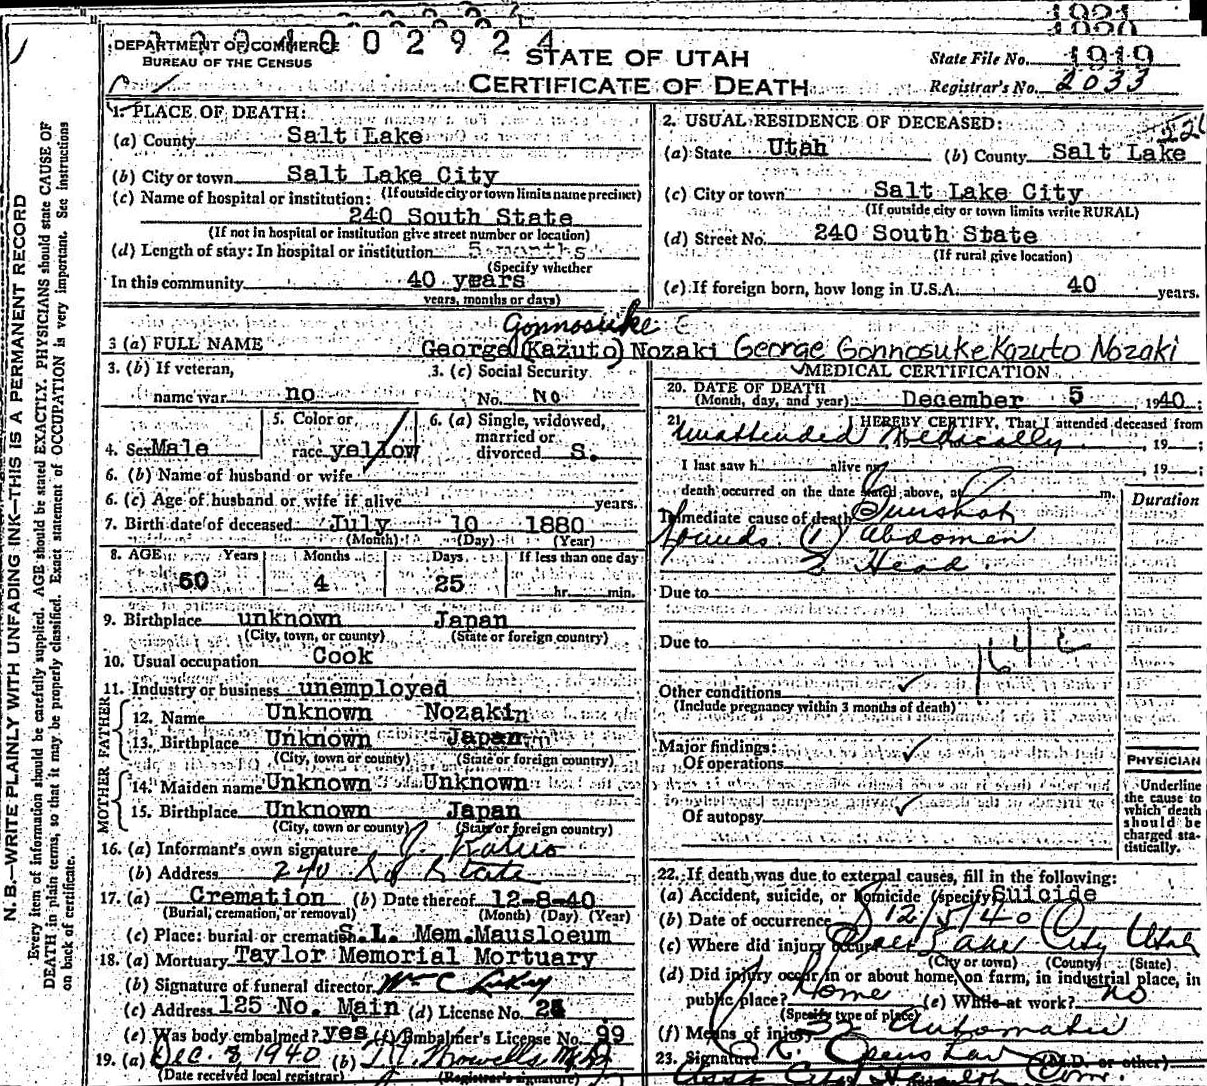 1921
1920
1002924
DEPARTMENT OF COMMERCE
BUREAU OF THE CENSUS
STATE OF UTAH
CERTIFICATE OF DEATH
State File No. 1919
Registrar's No. 2033
N. B.—WRITE PLAINLY WITH UNFADING INK—THIS IS A PERMANENT RECORD
Every item of information should be carefully supplied. AGE should be stated EXACTLY. PHYSICIANS should state CAUSE OF
DEATH in plain terms, so that it may be properly classified. Exact statement of OCCUPATION is very important. See instructions
on back of certificate.
1. PLACE OF DEATH:
(a) County Salt Lake
(b) City or town Salt Lake City
(If outside city or town limits name precinct)
(c) Name of hospital or institution:
240 South State
(If not in hospital or institution give street number or location)
(d) Length of stay: In hospital or institution 5 months
(Specify whether
In this community 40 years
years, months or days)
2. USUAL RESIDENCE OF DECEASED:
(a) State Utah (b) County Salt Lake
(c) City or town Salt Lake City
(If outside city or town limits write RURAL)
(d) Street No. 240 South State
(If rural give location)
(e) If foreign born, how long in U.S.A. 40 years.
Gonnosuke
3 (a) FULL NAME George (Kazuto) Nozaki George Gonnosuke Kazuto Nozaki
3. (b) If veteran,
name war no
3. (c) Social Security
No. No
4. Sex Male
5. Color or
race yellow
6. (a) Single, widowed,
married or
divorced S.
6. (b) Name of husband or wife
6. (c) Age of husband or wife if alive years.
7. Birth date of deceased July 10 1880
(Month) (Day) (Year)
8. AGE Years Months Days If less than one day
60 4 25 hr. min.
9. Birthplace unknown Japan
(City, town, or county) (State or foreign country)
10. Usual occupation Cook
11. Industry or business unemployed
FATHER
12. Name Unknown Nozaki
13. Birthplace Unknown Japan
(City, town or county) (State or foreign country)
MOTHER
14. Maiden name Unknown Unknown
15. Birthplace Unknown Japan
(City, town or county) (State or foreign country)
16. (a) Informant's own signature J.
(b) Address 240 So State
17. (a) Cremation (b) Date thereof 12-8-40
(Burial, cremation, or removal) (Month) (Day) (Year)
(c) Place: burial or cremation S.L. Mem. Mausloeum
18. (a) Mortuary Taylor Memorial Mortuary
(b) Signature of funeral director Wm C
(c) Address 125 No. Main (d) License No.
(e) Was body embalmed? yes (f) Embalmer's License No. 99
19. (a) Dec. 8, 1940 (b)
(Date received local registrar) (Registrar's signature)
MEDICAL CERTIFICATION
20. DATE OF DEATH
(Month, day, and year) December 5, 1940;
21. I HEREBY CERTIFY, That I attended deceased from
Unattended Medically, 19 ;
I last saw h alive on , 19 ;
death occurred on the date stated above, at m.
Duration
Immediate cause of death Gunshot
Wounds. (1) Abdomen
2 Head
Due to
Due to
Other conditions
(Include pregnancy within 3 months of death)
Major findings:
Of operations
Of autopsy
PHYSICIAN
Underline
the cause to
which death
should be
charged sta-
tistically.
22. If death was due to external causes, fill in the following:
(a) Accident, suicide, or homicide (specify) Suicide
(b) Date of occurrence 12/5/40
(c) Where did injury occur? Salt Lake City Utah
(City or town) (County) (State)
(d) Did injury occur in or about home, on farm, in industrial place, in
public place? Home (e) While at work? no
(Specify type of place)
(f) Means of injury 32 Automatic
23. Signature (M.D. or other)
Asst City Health Com